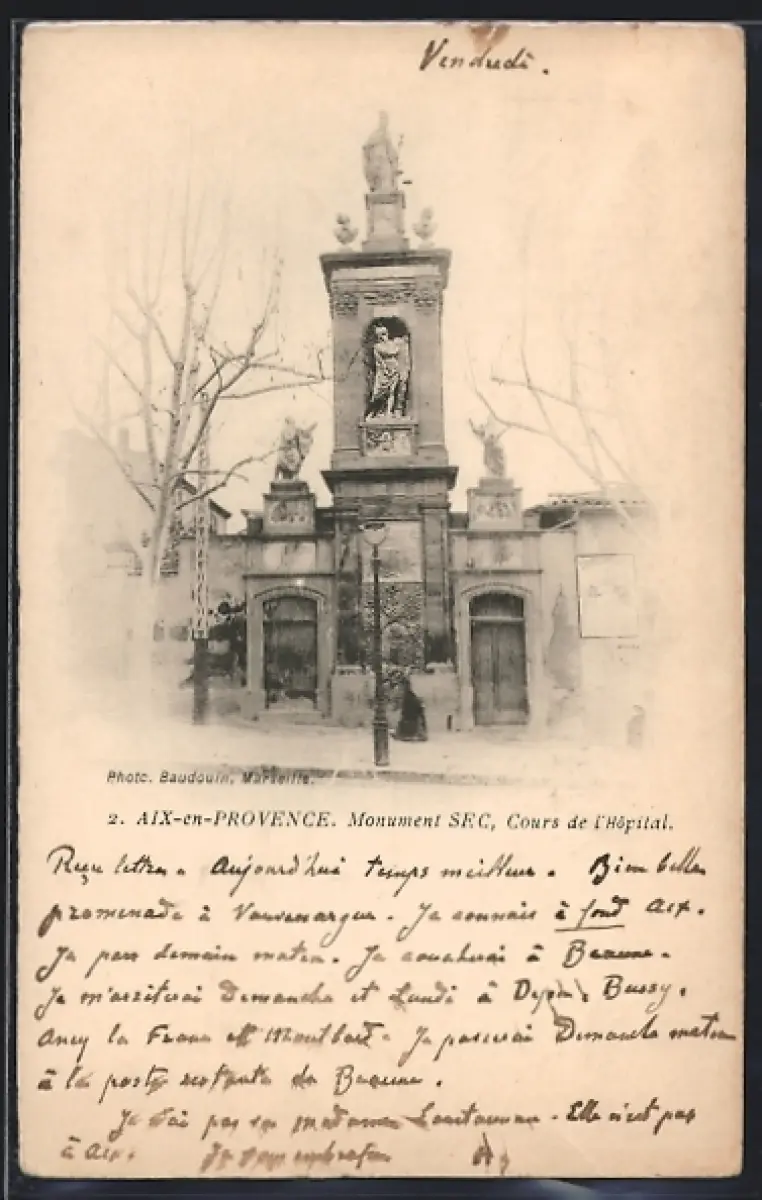 Vendredi.
Photo. Baudouin, Marseille.
2. AIX-en-PROVENCE. Monument SEC, Cours de l'Hôpital.
Reçu lettre. Aujourd'hui temps meilleur. Bien belle
promenade à Vauvenargue. Je connais à fond Aix.
Je pars demain matin. Je coucherai à Beaune.
Je m'arrêterai Dimanche et Lundi à Dijon, Bussy,
Ancy le Franc et Montbard. Je passerai Dimanche matin
à la poste restante de Beaune.
Je n'ai pas vu madame. Elle n'est pas
à Aix. Je vous embrasse